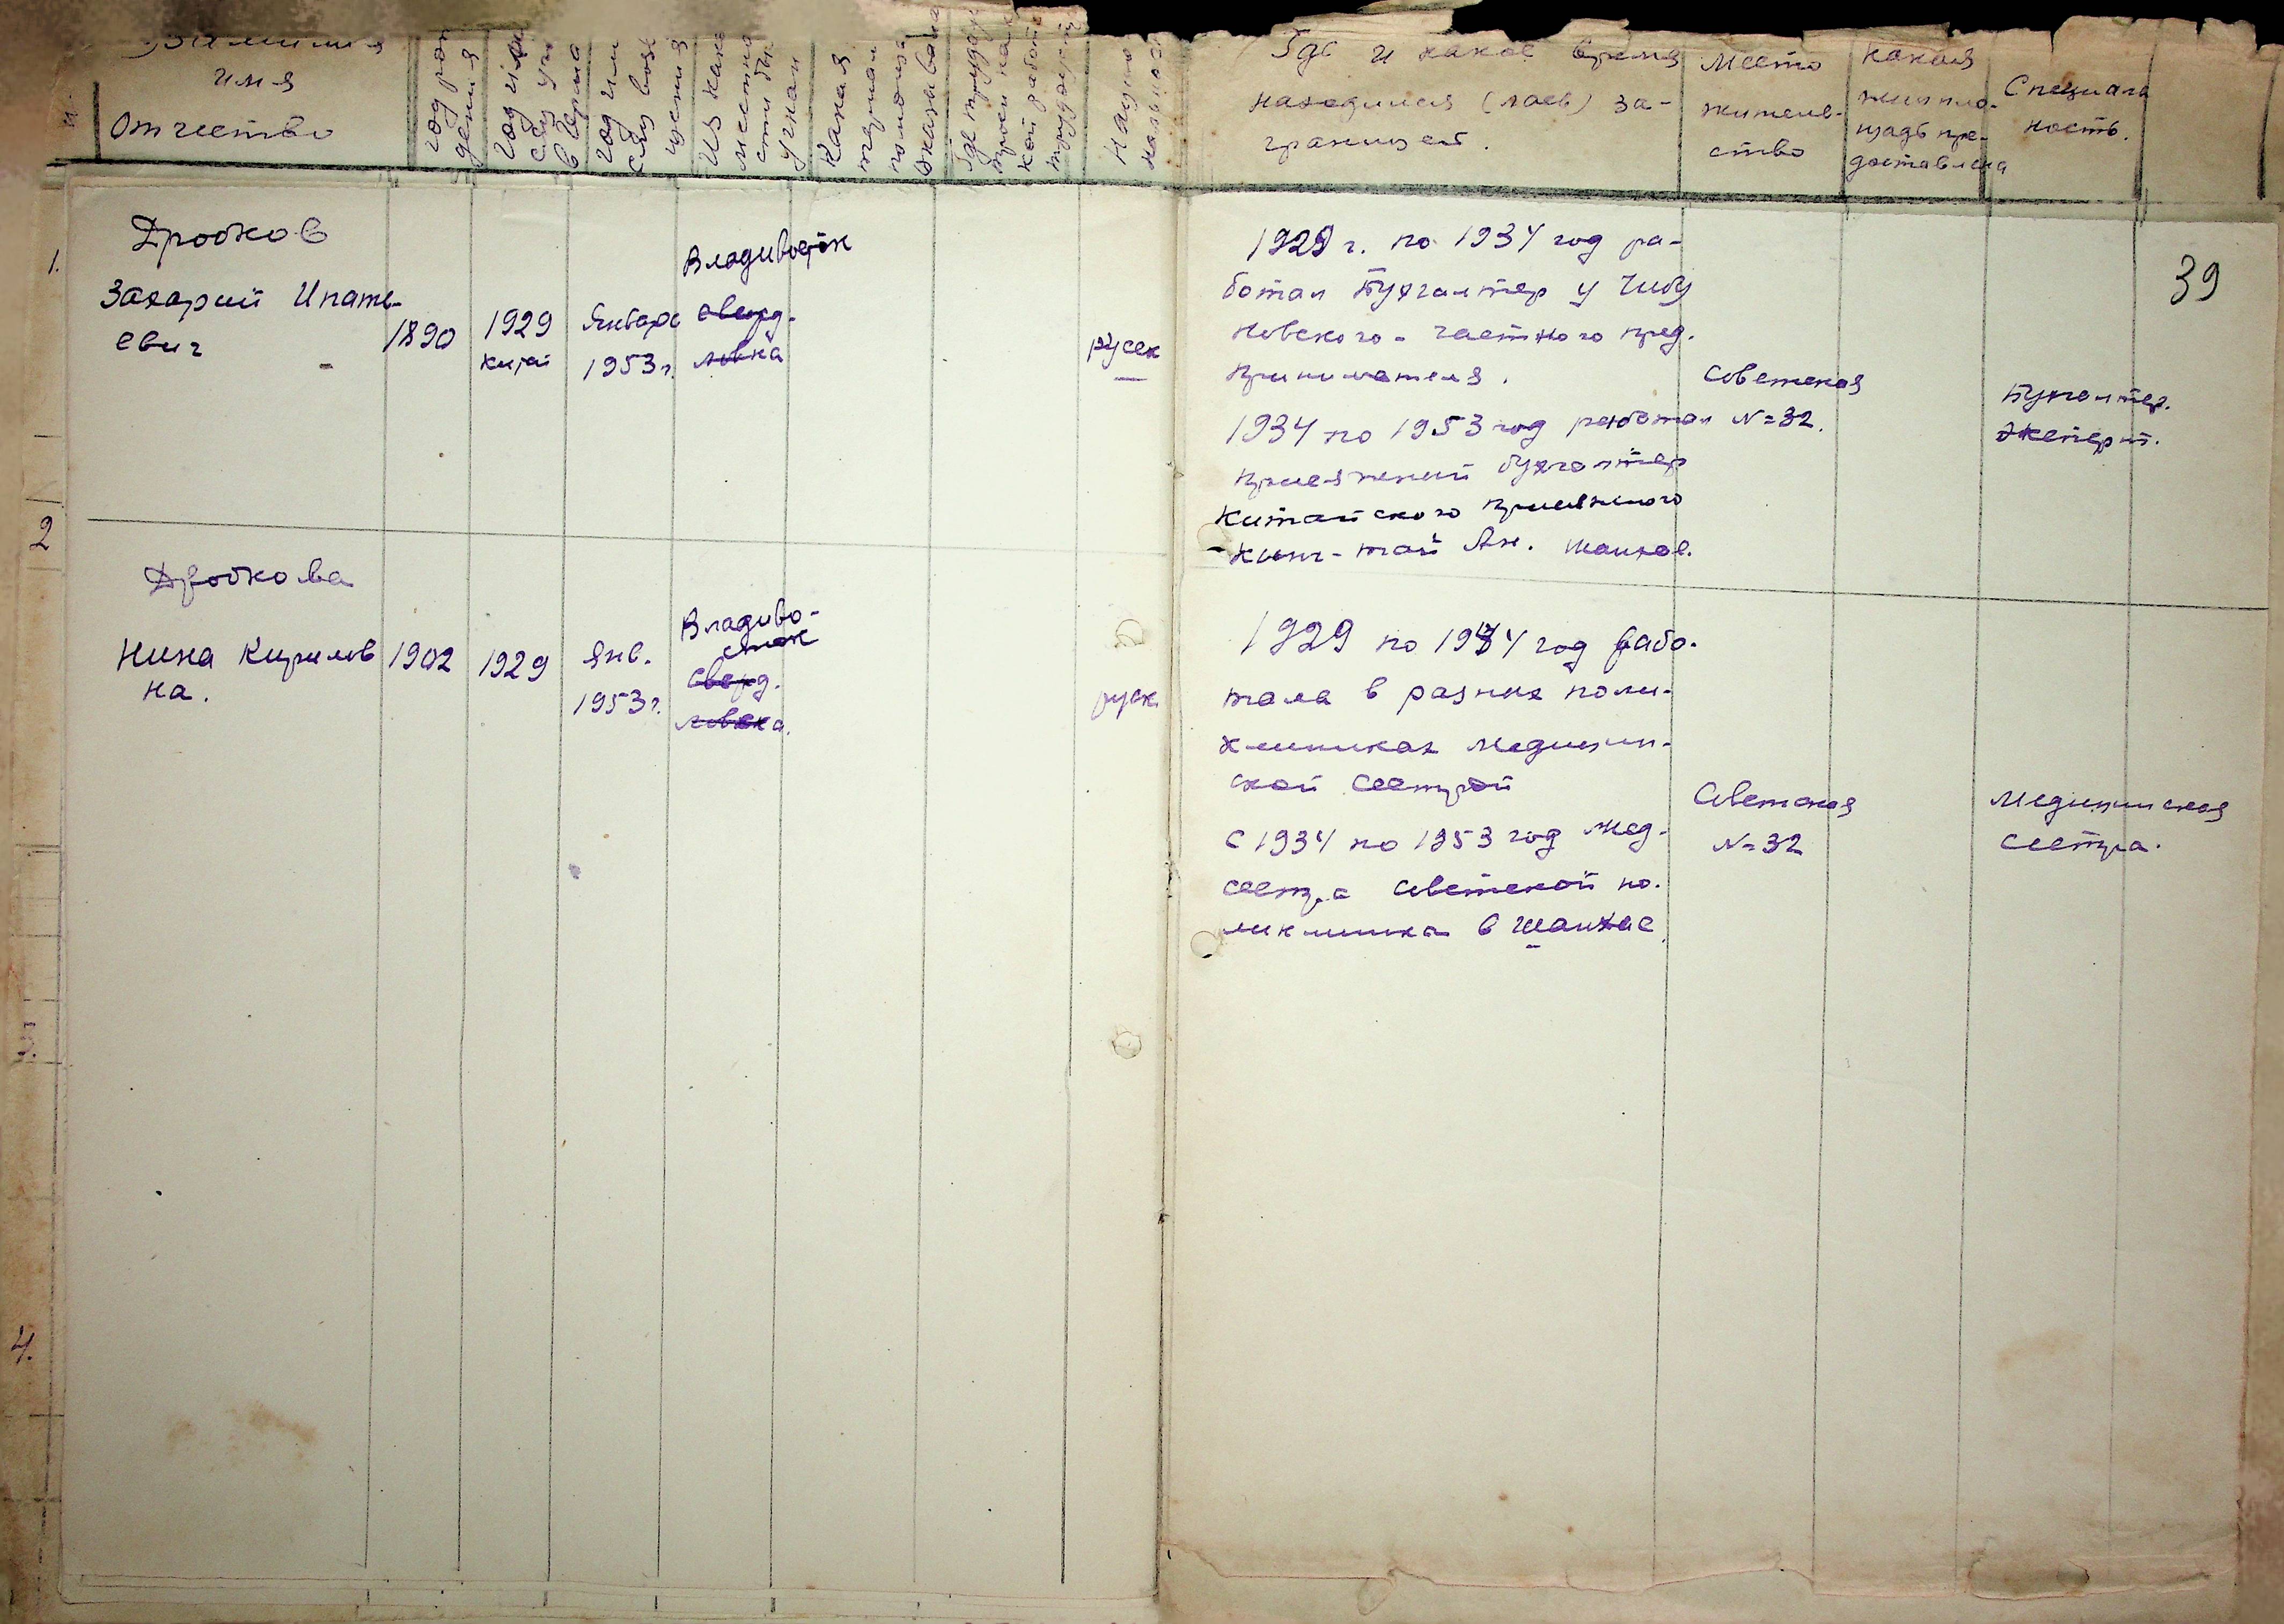 Фамилия
имя
Отчество
год рож
дения
год и м
сяц уг
в Герма
год и м
сяц возв
щения
Из како
местно
сти был
угнан
Какая
матерьял
помощь
оказыва
Где трудоу
кой работ
трудоустр
Нацио
нальнос
Где и какое время
находился (лась) за-
границей.
Место
житель-
ство
какая
жил пло-
щадь пре-
доставлена
Специаль
ность.
39
1.
Дробков
Захарий Ипать-
евич
1890
1929
Китай
Январь
1953 г.
Владивосток
Сверд-
ловка
русск
1929 г. по 1934 год ра-
ботал Бухгалтер у Чибу
новского - частного пред.
принимателя.
1934 по 1953 год работал
присяжный бухгалтер
Китайского присяжного
Шанхае.
Советская
№ 32.
Бухгалтер.
Эксперт.
2
Дробкова
Нина Кирилов
на.
1902
1929
Янв.
1953 г.
Владиво-
сток
Сверд.
ловска.
русск
1929 по 1934 год рабо-
тала в разных поли-
клиниках медицин-
ской сестрой
с 1934 по 1953 год мед-
сестра Советской по-
ликлиника в Шанхае.
Советская
№ 32
Медицинская
Сестра.
3.
4.